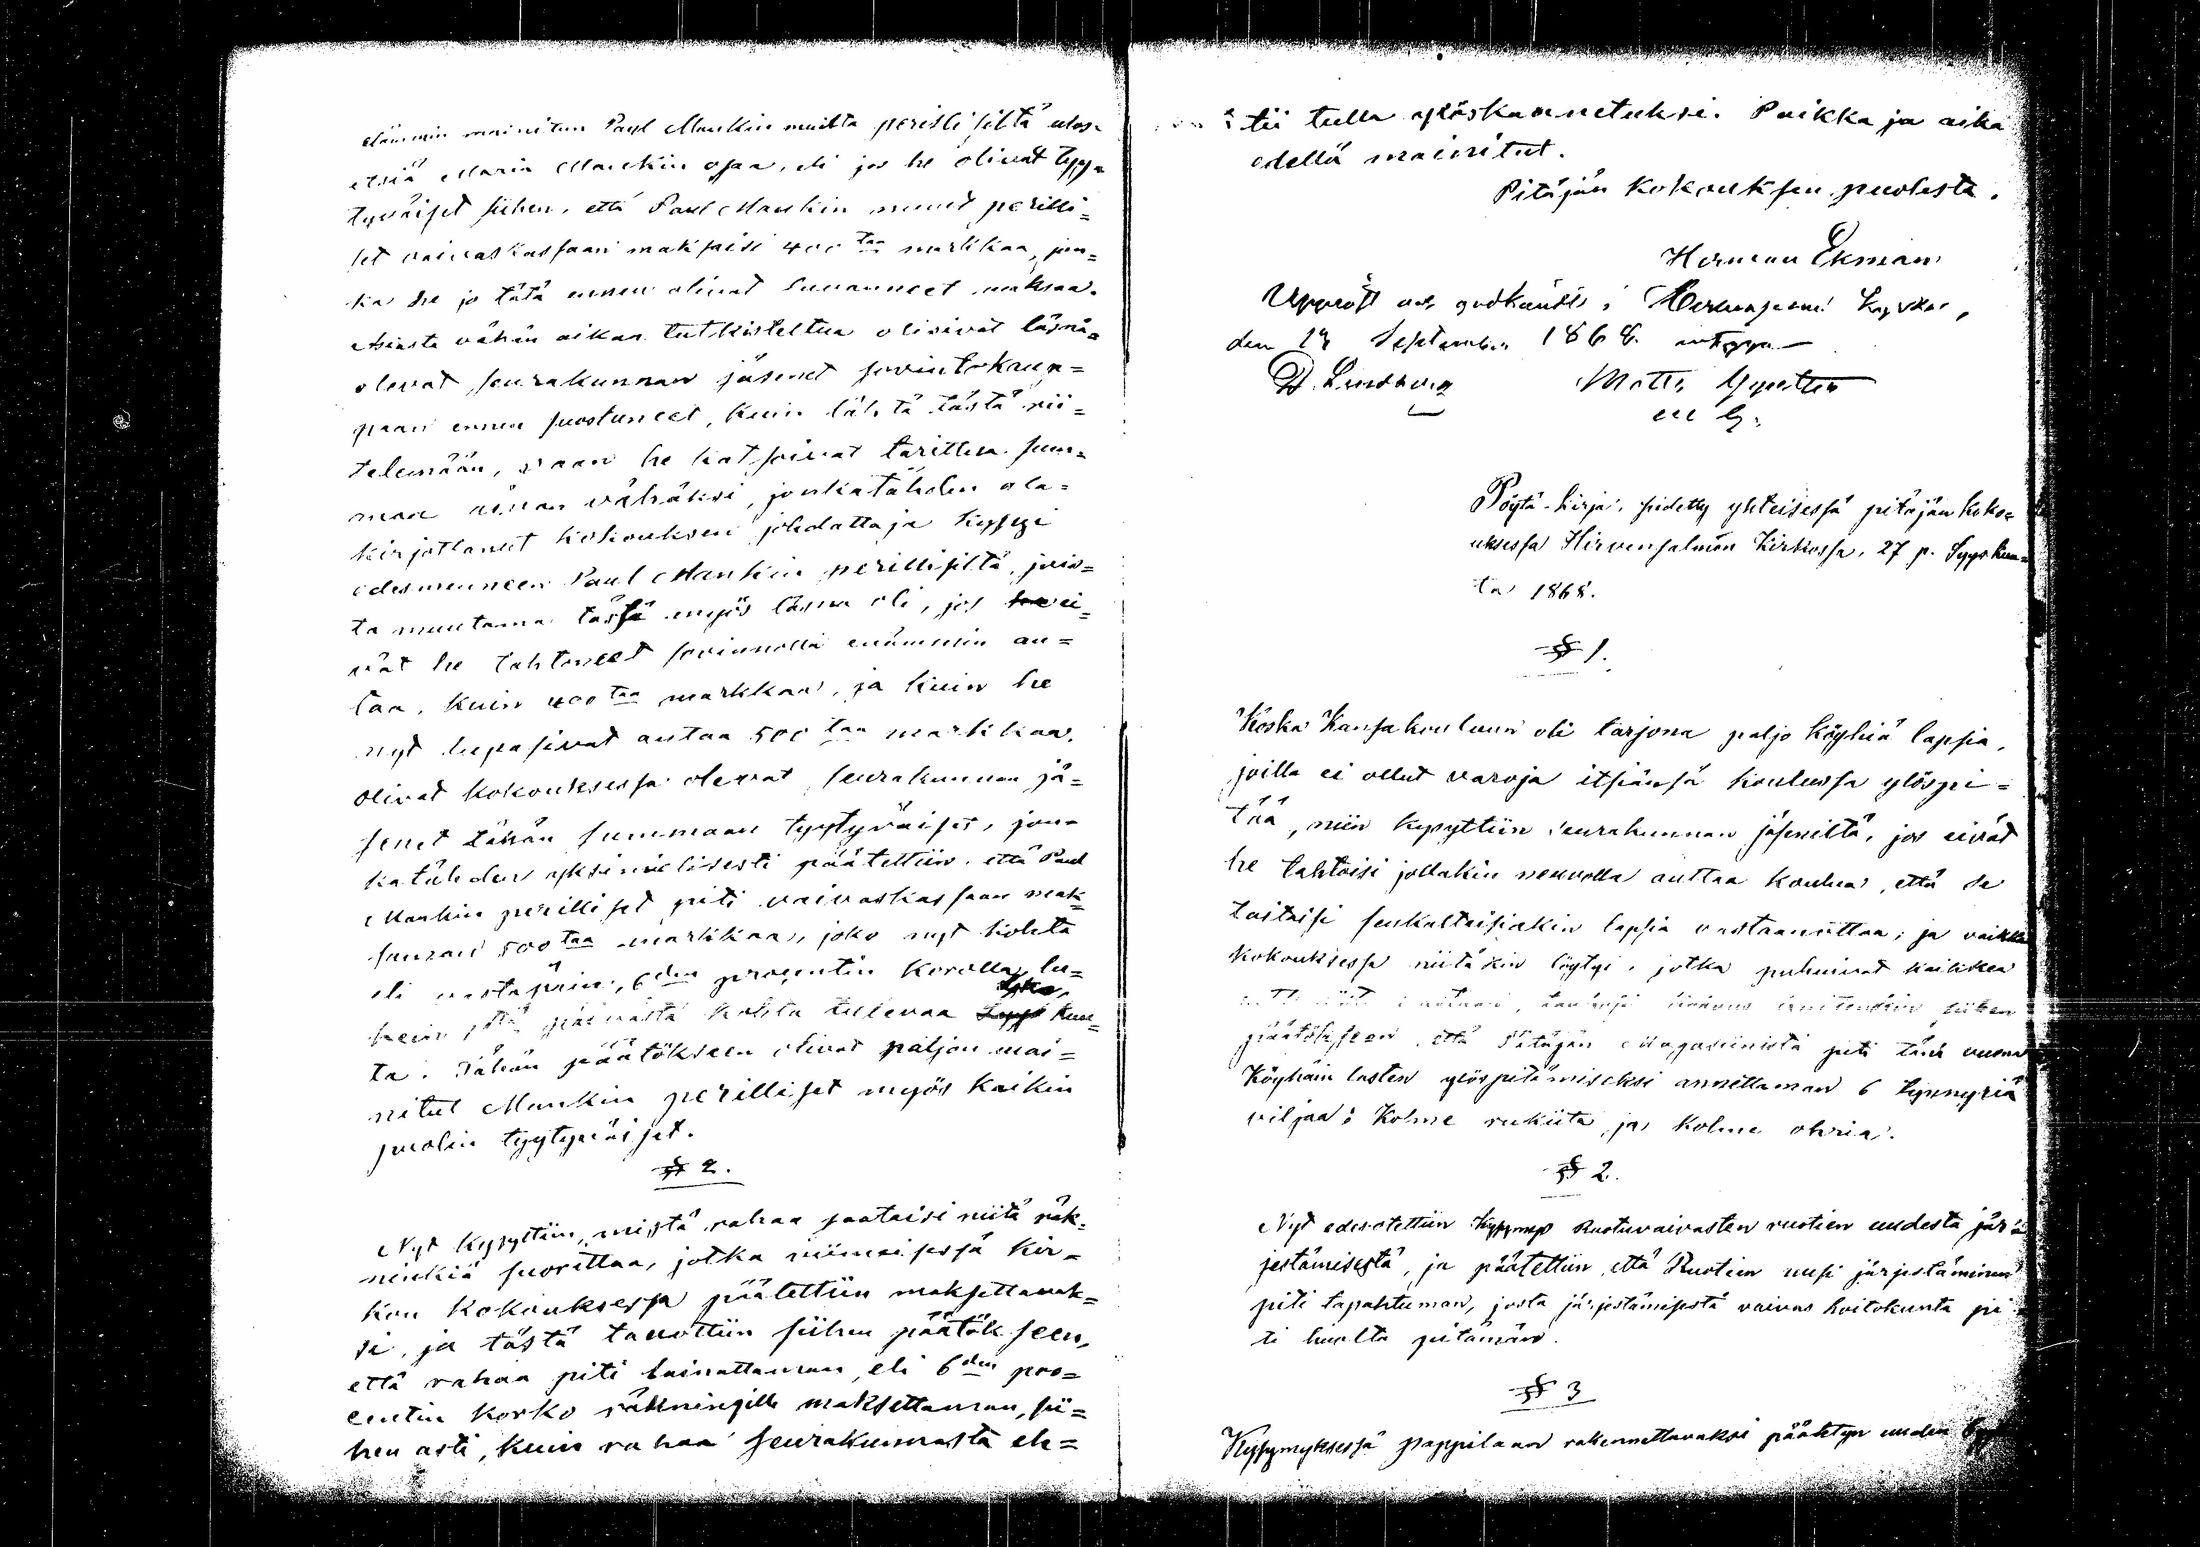 mainitun Paul Mankin muilta perillisiltä ulos-
etsiä Maria Mankin osaa, eli jos he olivat tyy-
tyväiset siihen, että Paul Mankin muut perilli=
set vaivaskassaan maksaisi 400 taa markkaa, jon=
ka he jo tätä ennen olivat luvanneet maksaa.
Asiasta vähän aikaa tutkisteltua olisivat läsnä=
olevat seurakunnan jäsenet sovintokaup=
paan ennen suostuneet, kuin lähtä tästä rii=
telemään, vaan he katsoivat taritun sum=
man aivan vähäksi, jonkatähden ala=
kirjoittanut kokouksen johdattaja kysyi
edesmenneen Paul Mankin perillisiltä, jois=
ta muutama tässä myös läsnä oli, jos ei=
vät he tahtoneet sovinnolla enämmin an=
taa, kuin 400 taa markkaa, ja kuin he
nyt lupasivat antaa 500 taa markkaa,
olivat kokouksessa olevat seurakunnan jä=
senet tähän summaan tyytyväiset, jon-
katähden yksimielisesti päätettiin, että Paul
Mankin perilliset piti vaivaskassaan mak=
saman 500 taa markkaa, joko nyt kohta
eli vastapäin, 6 den prosentin korolla, lu=
kein päivästä kohta tulevaa kuu=
ta. Tähän päätökseen olivat paljon mai=
nitut Mankin perilliset myös kaikin
puolin tyytyväiset.
§ 2.
Nyt kysyttiin, mistä rahaa saataisi niitä räk-
ninkiä suorittaa, jotka viimeisessä kir=
kon kokouksessa päätettiin maksettavak=
si, ja tästä tavottiin siihen päätökseen,
että rahaa piti lainattaman, eli 6 den pro=
centin korko räkningille maksettaman, sii=
hen asti, kuin rahaa seurakunnasta eh=
tii tulla ylöskannetuksi. Paikka ja aika
edellä mainitut.
Pitäjän kokouksen puolesta.
Herman Ekman
Uppläst och godkändt i Hirvensalmi kyrka,
den September 1868. intyga
D. Lindberg Matts
Pöytä-kirja, pidetty yhteisessä pitäjän koko=
uksessa Hirvensalmen Kirkossa, 27 p. Syyskuu=
ta 1868.
§ 1.
Koska Kansakouluun oli tarjona paljo köyhiä lapsia,
joilla ei ollut varoja itsiänsä koulussa ylöspi=
tää, niin kysyttiin seurakunnan jäseniltä, jos eivät
he tahtoisi jollakin neuvolla auttaa koulua, että se
taitaisi senkaltaisiakin lapsia vastaanottaa; ja vaikka
kokouksessa niitäkin löytyi, jotka puhuivat kaikkea
siihen
päätökseen, että Pitäjän Magasiinista piti tänä vuonna
Köyhäin lasten ylöspitämiseksi annettaman 6 tynnyriä
viljaa: Kolme rukiita ja kolme ohria.
§ 2.
Nyt edesotettiin kysymys Ruotuvaivasten ruotien uudesta jär=
jestämisestä, ja päätettiin, että Ruotien uusi järjestäminen
piti tapahtuman, josta järjestämisestä vaivas hoitokunta pi=
ti huolta pitämän.
§ 3
Kysymyksessä pappilaan rakennettavaksi päätetyn uuden